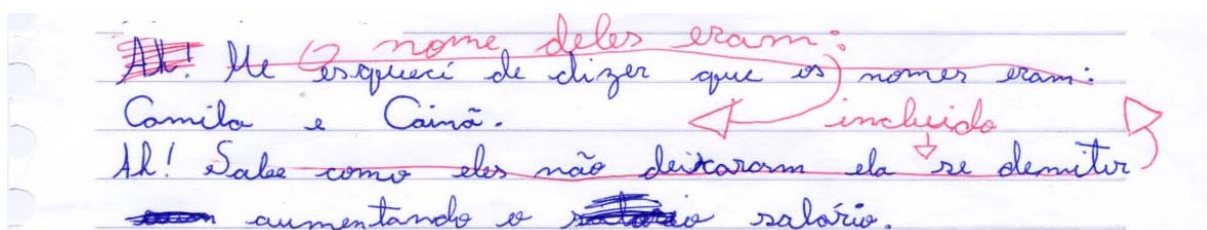 O nome deles eram:
Ah! Me esqueci de dizer que os nomes eram:
Camila e Cainã.
incluido
Ah! Sabe como eles não deixaram ela se demitir
aumentando o salário.